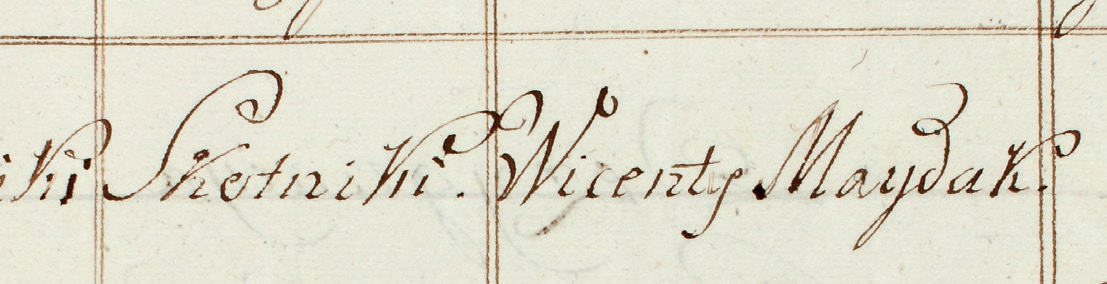 iki Skotniki. Wicenty Maydak.